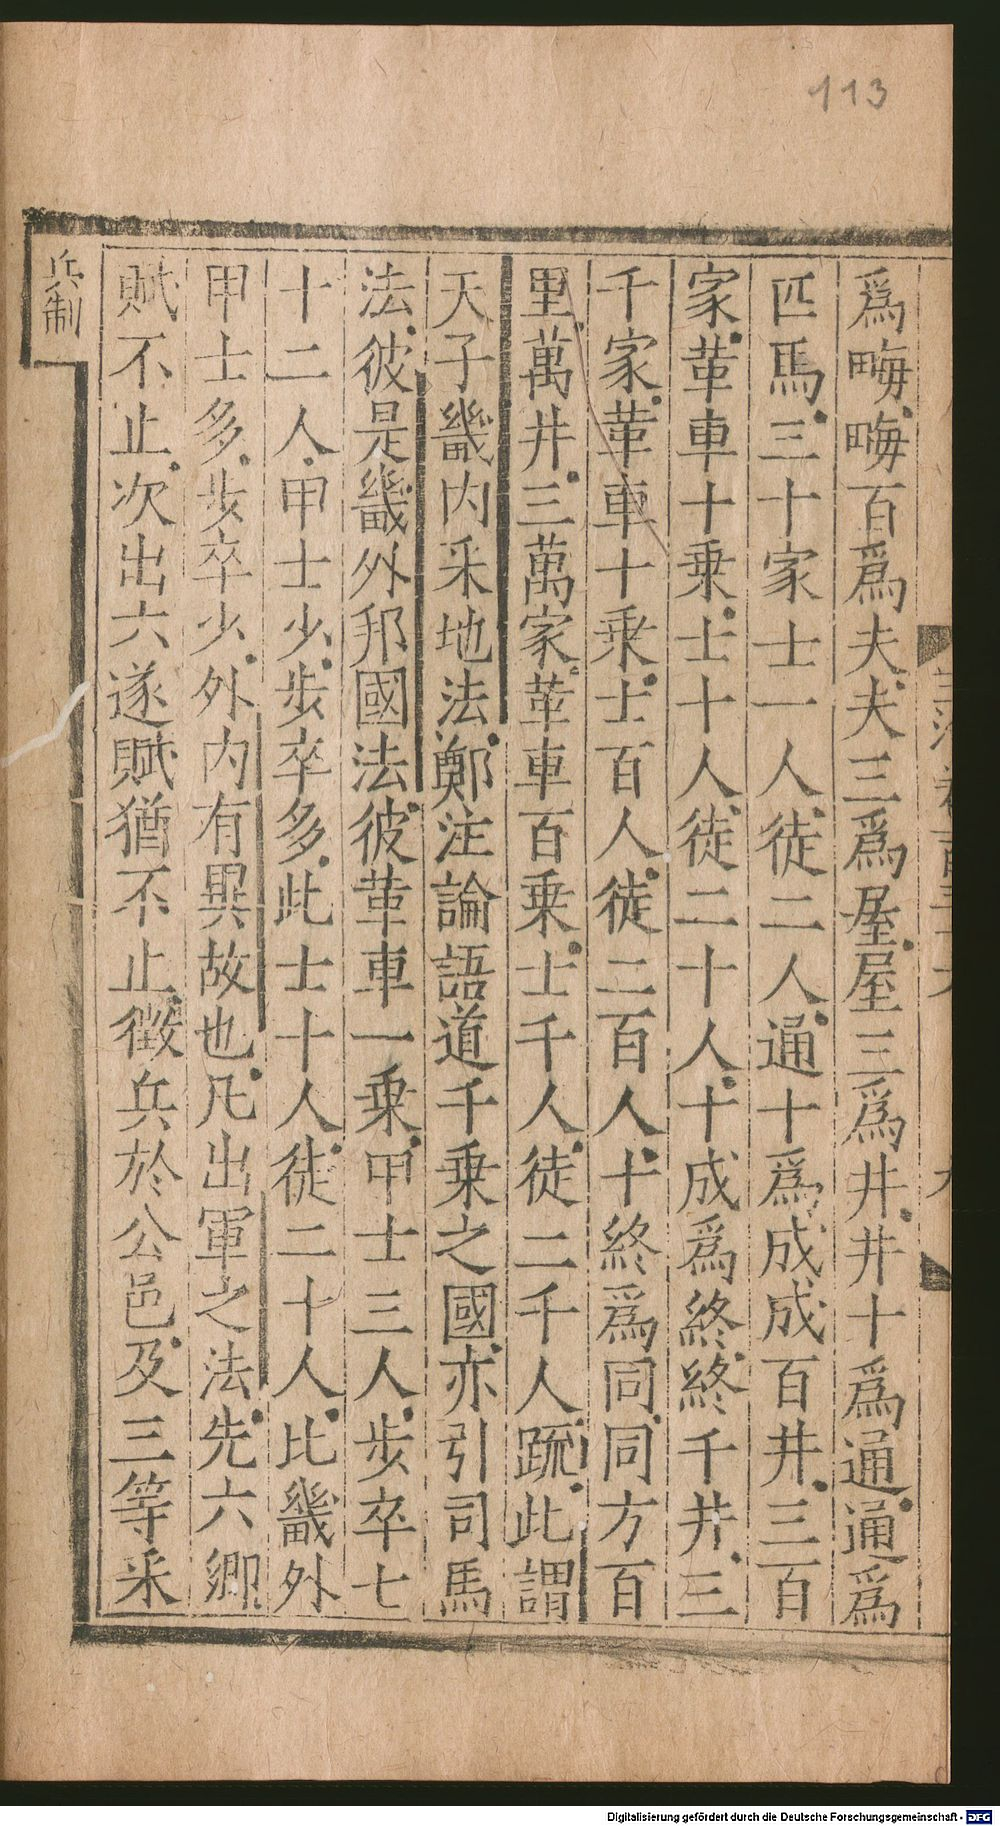 113
爲畮畮百爲夫夫三爲屋屋三爲井井十爲通通爲
匹馬三十家士一人徒二人通十爲成成百井三百
家革車十乗士十人徒二十人十成爲終終千井三
千家革車十乗士百人徒二百人十終爲同同方百
里萬井三萬家革車百乗士千人徒二千人䟽此謂
天子畿内采地法鄭注論語道千乗之國亦引司馬
法彼是畿外邦國法彼革車一乗甲士三人步卒七
十二人甲士少步卒多此士十人徒二十人比畿外
甲士多步卒少外内有異故也凡出軍之法先六鄉
賦不止次出六遂賦猶不止徵兵於公邑及三等采
兵制
Digitalisierung gefördert durch die Deutsche Forschungsgemeinschaft - DFG